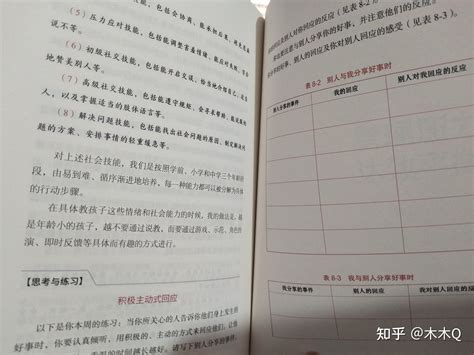 （5）压力应对技能，包括能
（6）初级社交技能，包括能调整害羞情绪、能应对
地赞美别人等。
（7）高级社交技能，包括能开启交谈、恰当地介绍自己
人，以及掌握适当的肢体语言等。
（8）解决问题技能，包括能找出社会问题的原因、制定解决问
题的方案、安排事情的轻重缓急等。
对上述社会技能，我们是按照学前、小学和中学三个年龄阶
段，由易到难、循序渐进地培养，每一种能力都可以被分解为具体
的行动步骤。
在具体教孩子这些情绪和社会能力的时候，我的做法是，越
是年龄小的孩子，越不要通过说教，而要通过游戏、示范、角色扮
演、即时反馈等具体而有趣的方式进行。
【思考与练习】
积极主动式回应
以下是你本周的练习：当你所关心的人告诉你他们身上发生的
好事时，你要认真倾听，用积极的、主动的方式来回应他们。
应（见表 8-2）。
意与别人分享你的好事，并注意他们的反
别人的回应及你对别人回应的感受（见表 8-3）。
表 8-2 别人与我分享好事时
别人分享的事件 我的回应 别人对我回应的反应
表 8-3 我与别人分享好事时
我分享的事件 别人的回应 我对别人回应的
知乎 @木木Q